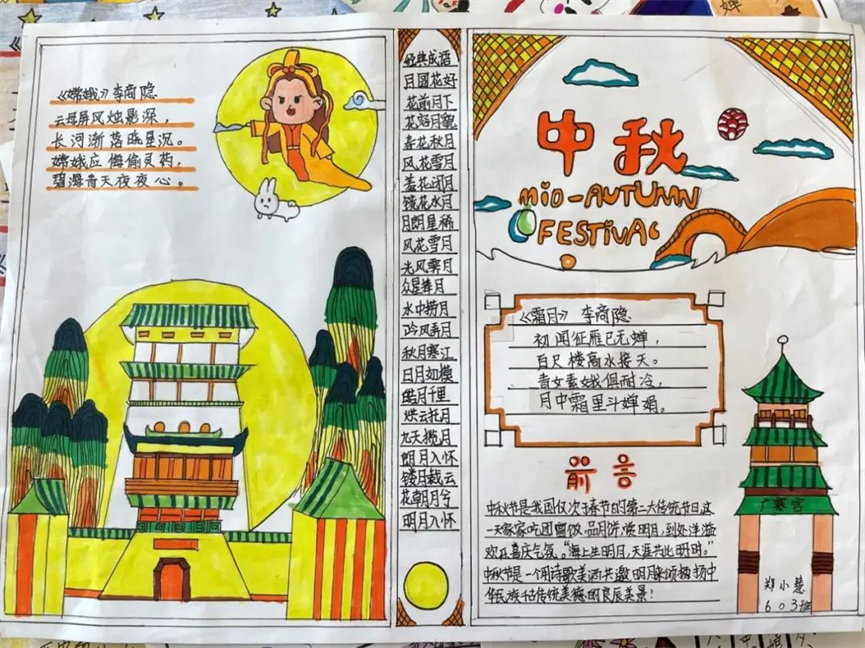 《嫦娥》李商隐
云母屏风烛影深，
长河渐落晓星沉。
嫦娥应悔偷灵药，
碧海青天夜夜心。
经典成语
月圆花好
花前月下
花好月貌
春花秋月
风花雪月
羞花闭月
镜花水月
月朗星稀
风花雪月
光风霁月
众星捧月
水中捞月
吟风弄月
秋月寒江
日月如梭
皓月千里
烘云托月
九天揽月
朗月入怀
镂月裁云
花朝月兮
明月入怀
中秋
MID-AUTUMN
FESTIVAL
《霜月》 李商隐
初闻征雁已无蝉，
百尺楼高水接天。
青女素娥俱耐冷，
月中霜里斗婵娟。
前言
中秋节是我国仅次于春节的第二大传统节日这
一天家家吃团圆饭、品月饼、赏明月，到处洋溢
欢乐喜庆气氛。“海上生明月，天涯共此明时。”
中秋节是一个用诗歌美酒共邀明月来颂扬中
华民族传统美德的良辰美景！
广寒宫
郑小慧
603班